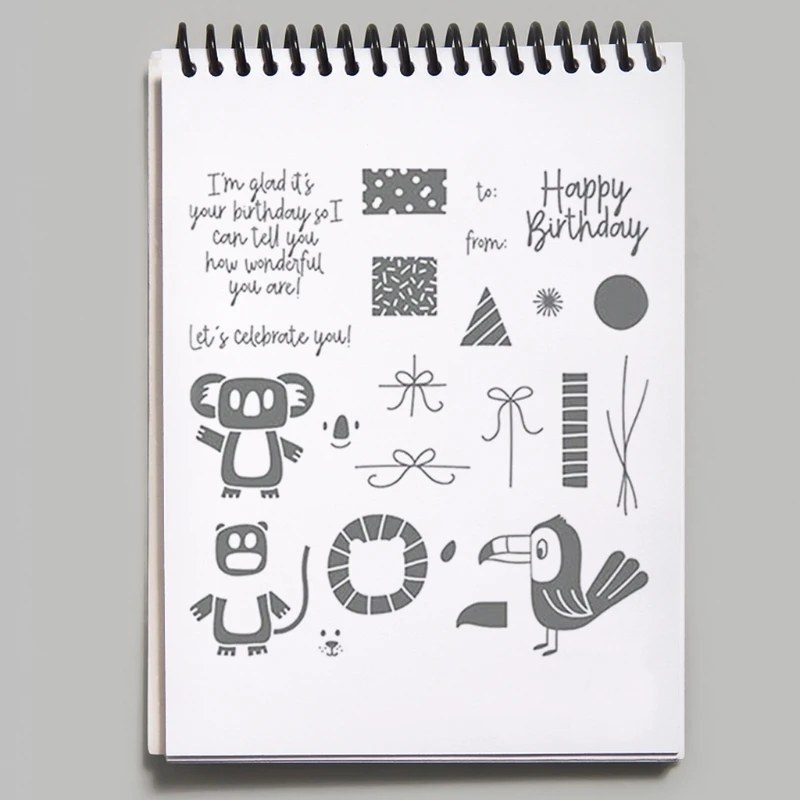 I'm glad it's
your birthday so I
can tell you
how wonderful
you are!
Let's celebrate you!
to:
from:
Happy
Birthday